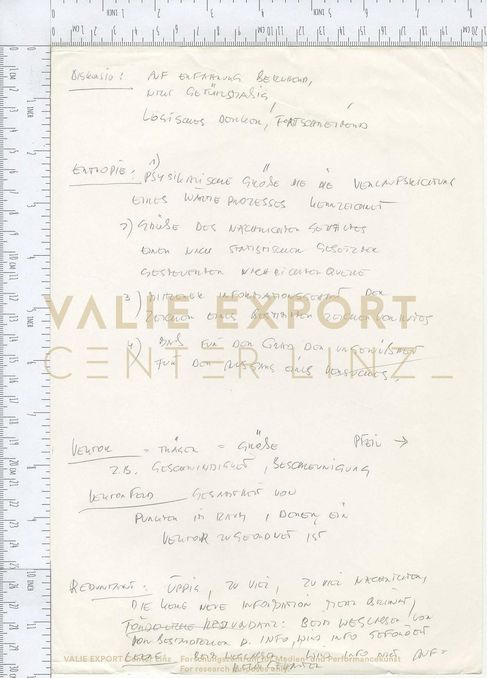 Diskursiv: AUF ERFAHRUNG BERUHEND,
NICHT GEFÜHLSMÄSSIG,
LOGISCHES DENKEN, FORTSCHREITEND
ENTROPIE: 1) PHYSIKALISCHE GRÖSSE DIE DIE VERLAUFSRICHTUNG
EINES WÄRMEPROZESSES KENNZEICHNET
2) GRÖSSE DES NACHRICHTEN GEHALTES
EINER NACH STATISTISCHEN GESETZEN
GESTEUERTEN NACHRICHTENQUELLE
3) MITTLERER INFORMATIONSGEHALT DER
ZEICHEN EINES BESTIMMTEN ZEICHENVORRATES
4) MASS FÜR DEN GRAD DER UNGEWISSHEIT
FÜR DEN AUSGANG EINES VERSUCHES,
VALIE EXPORT
CENTER LINZ_
VEKTOR = TRÄGER = GRÖSSE PFEIL →
Z.B. GESCHWINDIGKEIT, BESCHLEUNIGUNG
VEKTORFELD GESAMTHEIT VON
PUNKTEN IM RAUM, DENEN EIN
VEKTOR ZUGEORDNET IST
REDUNDANT: ÜPPIG, ZU VIEL, ZU VIEL NACHRICHTEN,
DIE KEINE NEUE INFORMATION MEHR BRINGT,
REDUNDANZ: BEIM WEGLASSEN VON
VON BESTIMMTEREN D. INFO, WIRD INFO GEFÖRDERT
BEIM WEGLASSEN WIRD INFO NICHT AUF-
VALIE EXPORT Center Linz _ Forschungszentrum für Medien- und Performancekunst
For research purposes only!